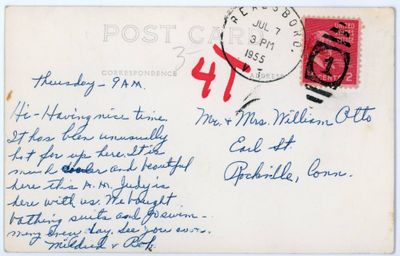 POST CARD
CORRESPONDENCE
ADDRESS
READSBORO.
JUL 7
3 PM
1955
VT
1
2
5
41
Thursday - 9 A.M.
Hi - Having nice time.
It has been unusually
hot for up here. It is
much cooler and beautiful
here this A.M. Judy is
here with us. We bought
bathing suits and go swim-
ming every day. See you soon.
Mildred & Bob
Mr. & Mrs. William Otto
Earl St
Rockville, Conn.